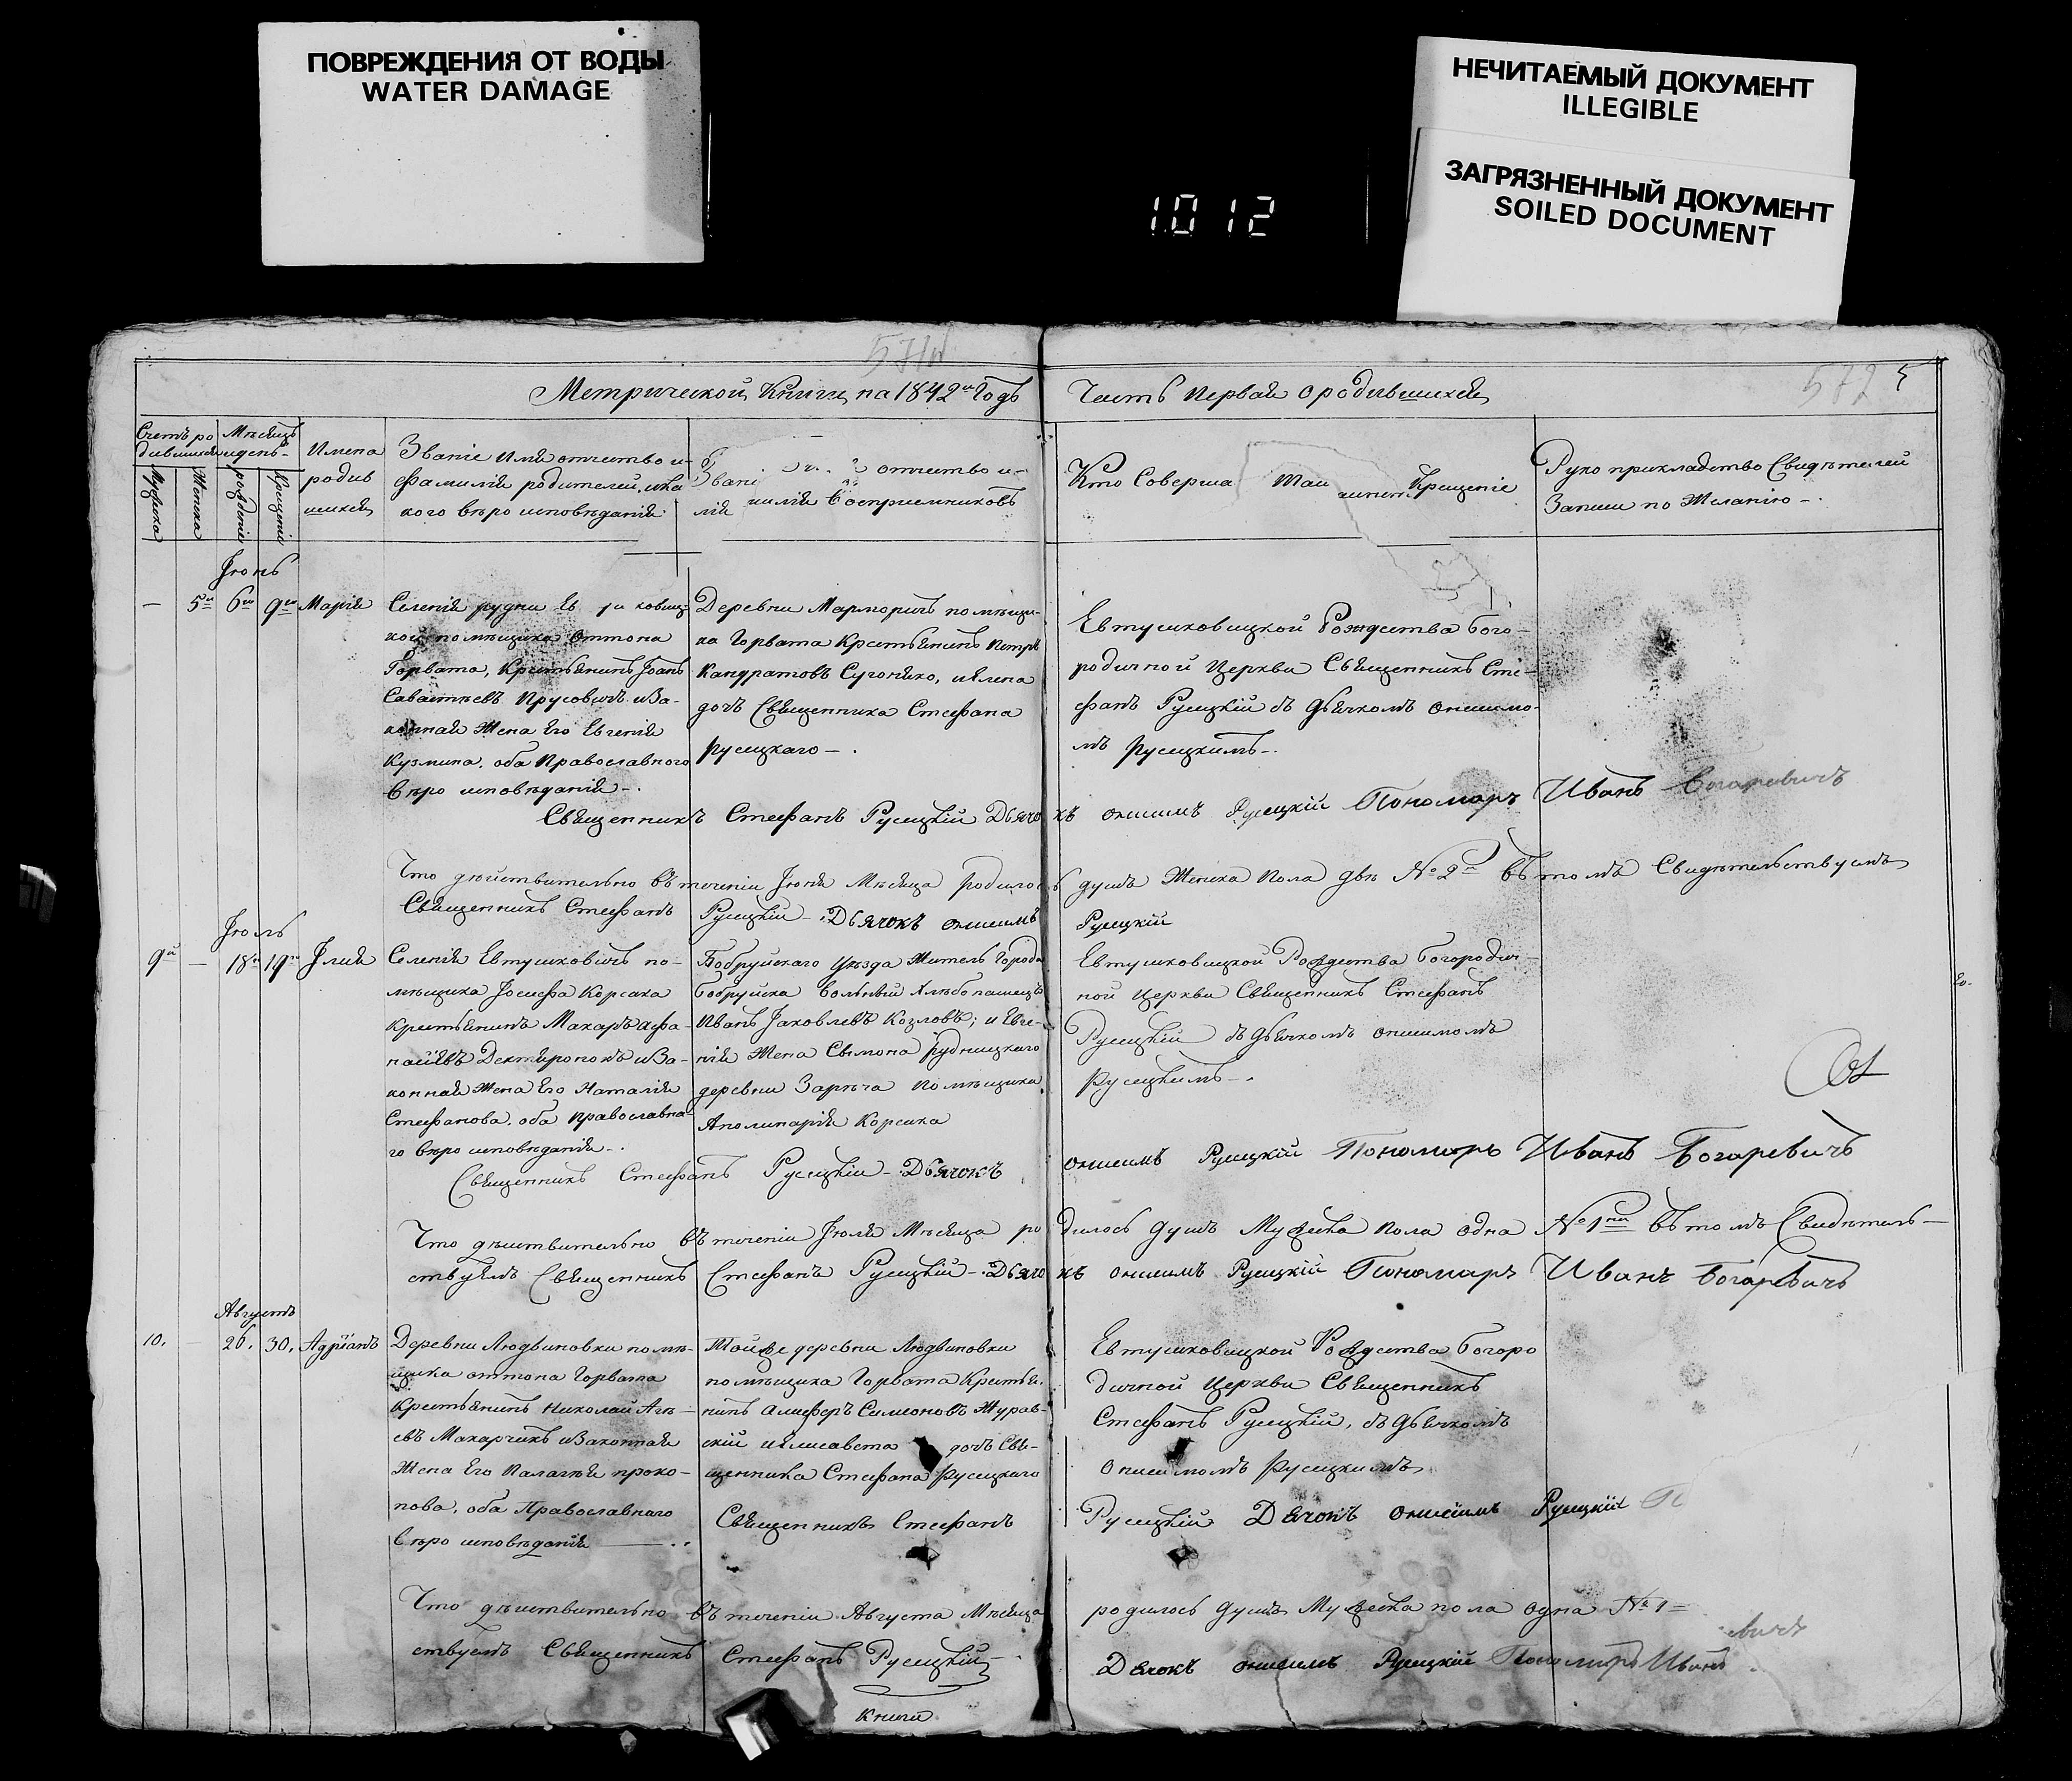 ПОВРЕЖДЕНИЯ ОТ ВОДЫ
WATER DAMAGE
НЕЧИТАЕМЫЙ ДОКУМЕНТ
ILLEGIBLE
ЗАГРЯЗНЕННЫЙ ДОКУМЕНТ
SOILED DOCUMENT
1012
572
Метрической Книги на 1842й Годъ
Часть первая о родившихся
Счетъ ро
дившихся
Мѣсяцъ
и день
Мужеска
Женска
рожденія
Крещенія
Имена
родив
шихся
Званіе имя отчество и
фамилія родителей, и ка
кого вѣро исповѣданія
Звані отчество и
милія Воспріемниковъ
Кто Соверша Таи Крещеніе
Руко прикладство Свидѣтелей
Записи по Желанію
Іюнь
5й 6го 9го Марія
Селенія рудни Ев ковиц
кой помѣщика Оттона
Горвата, Крестьянинъ Іоанъ
Саватѣевъ Прусовичъ и За-
конная Жена Его Евгенія
Кузмина, оба Православного
вѣро исповѣданія
Деревни Марморичъ помѣщи-
ка Горвата Крестьянинъ Петръ
Кандратовъ Сугоняко, и Елена
дочъ Священника Стефана
Русецкаго
Евтушковицкой Рождества Бого-
родичной Церкви Священникъ Сте-
фанъ Русецкій съ дьячкомъ Онисимо-
мъ Русецкимъ
Священникъ Стефанъ Русецкій Дьячокъ Онисимъ Русецкій Пономаръ Иванъ Богаревичъ
Что дѣйствительно въ теченіи Іюня Мѣсяца родилось душъ Женска пола двѣ №2й въ томъ Свидѣтельствуемъ
Священникъ Стефанъ Русецкій Дьячокъ Онисимъ Русецкій
Іюль
9й 18го 19го Илія
Селенія Евтушковичъ по-
мѣщика Іосифа Корсака
крестьянинъ Макаръ Афа-
насіевъ Дектяронокъ и За-
конная Жена Его Наталія
Стефанова, оба Православна-
го вѣро исповѣданія
Бобруйскаго Уѣзда Житель Города
Бобруйска вольный хлѣбопашецъ
Иванъ Іаковлевъ Козловъ; и Евге-
нія Жена Симона Рудницкаго
деревни Зарѣча помѣщика
Аполинарія Корсака
Евтушковицкой Рождества Богородич-
ной Церкви Священникъ Стефанъ
Русецкій съ дьячкомъ Онисимомъ
Русецкимъ
Священникъ Стефанъ Русецкій Дьячокъ Онисимъ Русецкій Пономаръ Иванъ Богаревичъ
Что дѣиствительно въ теченіи Іюля Мѣсяца родилось душъ Мужеска пола одна №1й въ томъ Свидѣтель-
ствуемъ Священникъ Стефанъ Русецкій Дьячокъ Онисимъ Русецкій Пономаръ Иванъ Богаревичъ
Августъ
10. 26. 30. Адріанъ
Деревни Людвиновки помѣ-
щика оттона Горвата
Крестьянинъ Николай
евъ Макарчикъ и Законная
Жена Его Палагѣя проко-
пова, оба Православнаго
вѣро исповѣданія
Тойже деревни Людвиновки
помѣщика Горвата Крестья-
нинъ Алиферъ Симеоновъ Журав-
скій и Елисавета дочъ Свя-
щенника Стефана Русецкаго
Евтушковицкой Рождества Богоро
дичной Церкви Священникъ
Стефанъ Русецкій, съ дьячкомъ
Онисимомъ Русецкимъ
Священникъ Стефанъ Русецкій Дячокъ Онисимъ Русецкій
Что дѣиствительно въ теченіи Августа Мѣсяца родилось душъ Мужеска пола одна №1
ствуемъ Священникъ Стефанъ Русецкій Дячокъ Онисимъ Русецкій Пономаръ Иванъ евичъ
Книги